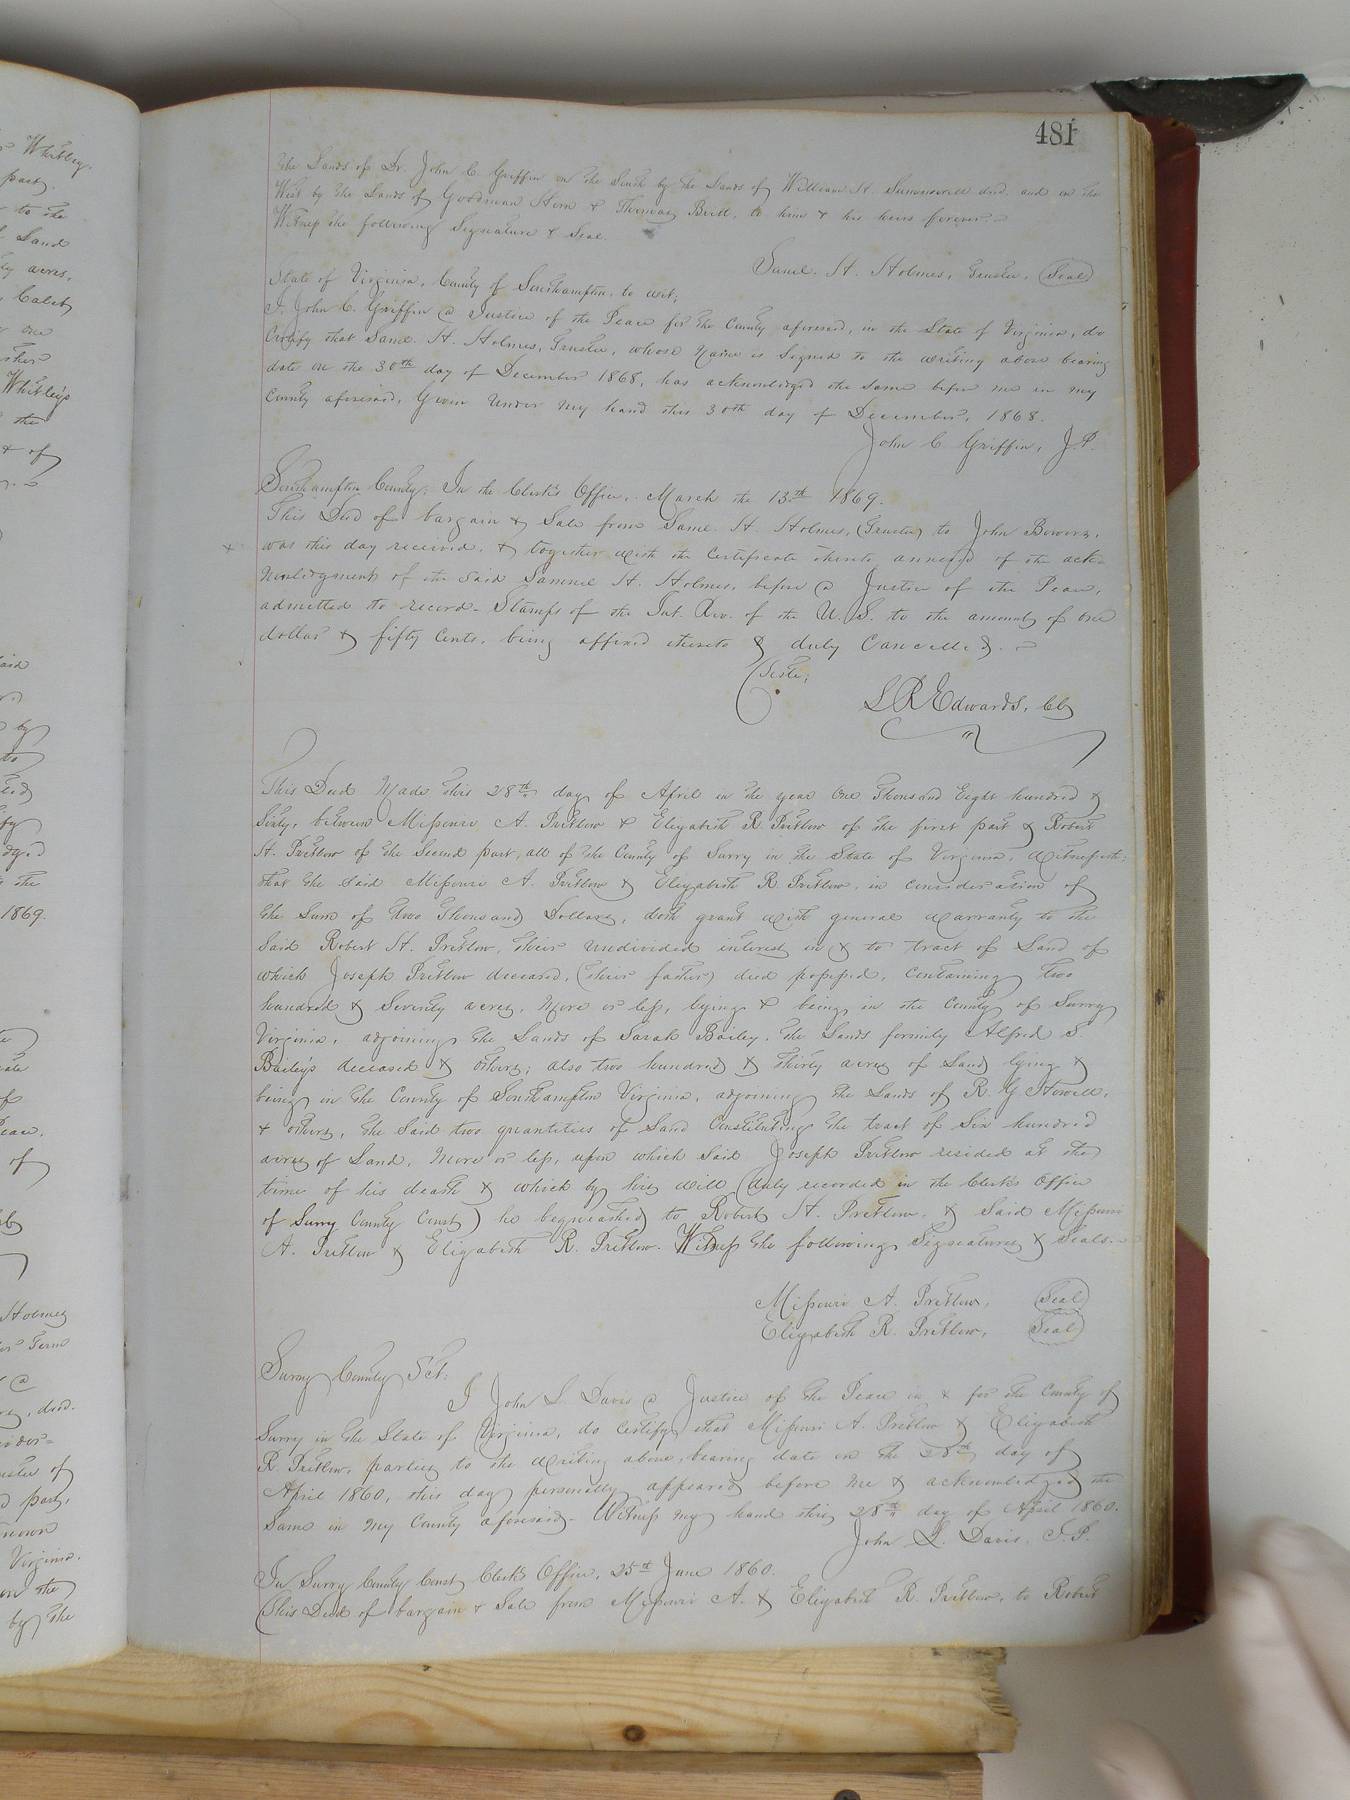 481
the Lands of Dr. John C. Griffin on the South by the Lands of William H. Summerell decd. and on the
West by the Lands of Goodman Horn & Thomas Britt, to him & his heirs forever.
Witness the following Signature & Seal.
Saml. H. Holmes, Trustee, (Seal)
State of Virginia, County of Southampton, to wit;
I, John C. Griffin a Justice of the Peace for the County aforesaid, in the State of Virginia, do
Certify that Saml. H. Holmes, Trustee, whose Name is Signed to the writing above bearing
date on the 30th day of December 1868, has acknowledged the same before me in my
County aforesaid, Given Under My hand this 30th day of December, 1868.
John C. Griffin, J.P.
Southampton County: In the Clerk's Office, March the 13th 1869.
This Deed of bargain & Sale from Saml. H. Holmes, (Trustee) to John Bowers,
was this day received, & together with the Certificate thereto annexed of the ack-
nowledgment of the said Samuel H. Holmes, before a Justice of the Peace,
admitted to record - Stamps of the Int. Rev. of the U. S. to the amount of one
dollar & fifty Cents, being affixed thereto & duly Cancelled.
Teste;
L R Edwards, Clk
This Deed Made this 28th day of April in the year One Thousand Eight hundred &
Sixty, between Missouri A. Pretlow & Elizabeth R. Pretlow of the first part & Robert
H. Pretlow of the Second part, all of the County of Surry in the State of Virginia, Witnesseth:
that the said Missouri A. Pretlow & Elizabeth R. Pretlow, in consideration of
the Sum of two Thousand Dollars, doth grant with general Warranty to the
Said Robert H. Pretlow, their undivided interest in & to tract of Land of
which Joseph Pretlow deceased, (their father) died possessed, Containing two
hundred & Seventy acres, More or less, lying & being in the County of Surry
Virginia, adjoining the Lands of Sarah Bailey, the Lands formily Alfred S.
Bailey's deceased & others; also two hundred & thirty acres of Land lying &
being in the County of Southampton Virginia, adjoining the Lands of R. G Howell,
& others, the Said two quantities of Land Constituting the tract of Six hundred
acres of Land, More or less, upon which Said Joseph Pretlow resided at the
time of his death & which by his will (duly recorded in the Clerk's Office
of Surry County Court) he bequeathed to Robert H. Pretlow, & Said Missouri
A. Pretlow & Elizabeth R. Pretlow. Witness the following Signatures & Seals.
Missouri A. Pretlow, (Seal)
Elizabeth R. Pretlow, (Seal)
Surry County Sct:
I John L. Davis a Justice of the Peace in & for the County of
Surry in the State of Virginia, do Certify that Missouri A. Pretlow & Elizabeth
R. Pretlow, parties to the writing above, bearing date on the 28th day of
April 1860, this day personally appeared before me & acknowledged the
Same in My County aforesaid - Witness my hand this 28th day of April 1860.
John L. Davis, J.P.
In Surry County Court Clerk's Office, 25th June 1860.
This Deed of bargain & Sale from Missouri A. & Elizabeth R. Pretlow, to Robert